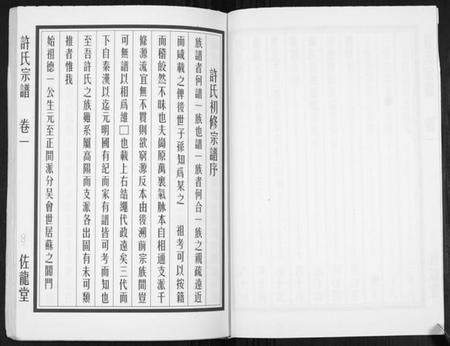 許氏初修宗譜序
族譜者何譜一族也譜一族者何合一族之親疏遠近
而咸載之俾後世子孫知為某之　祖考可以按籍
而稽皎然不昧也夫崗原萬裏氣脉本自相通支派千
條源流宜無不貫則欲窮源反本由後溯前宗族間豈
可無譜以相為維□也載上右結繩代政遠矣三代而
下自秦漢以迄元明國有記而家有譜皆可考而知也
至吾許氏之族雖系屬高陽而支派各出固有未可類
推者惟我
始祖德一公生元至正間派分吴會世居蘇之閶門
許氏宗譜　卷一
佐龍堂